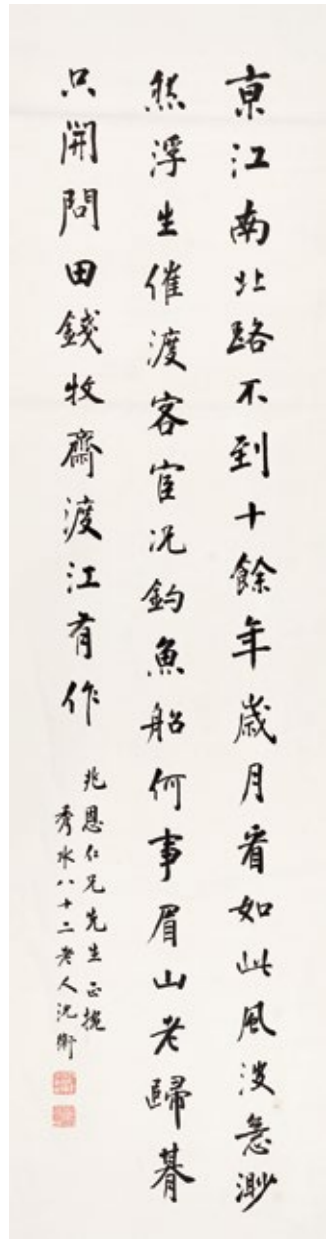 亰江南北路不到十餘年歲月看如此風波意渺
然浮生催渡客宦况釣魚船何事眉山老歸朞
只開問田錢牧齋渡江有作
兆恩仁兄先生正擥
秀水八十二老人沈衛